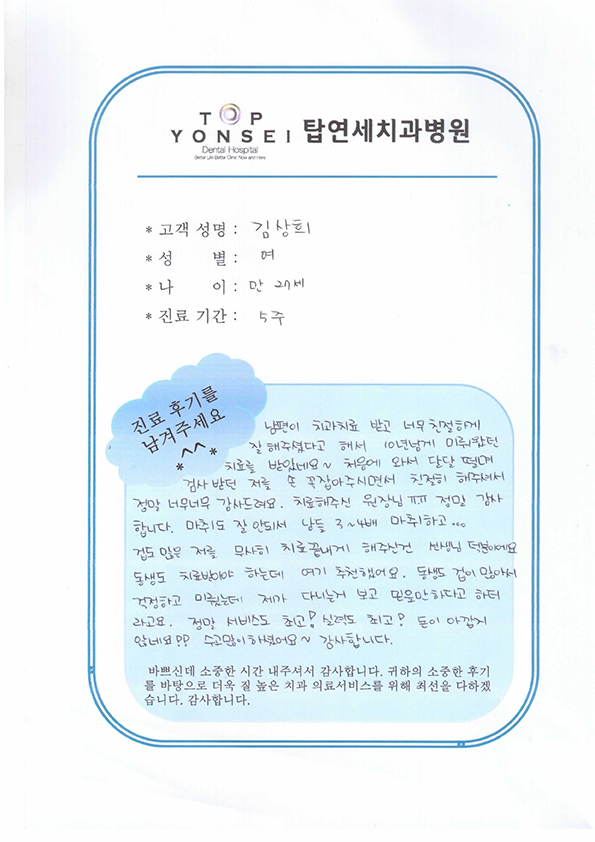 TOP
YONSEI
Dental Hospital
Better Life Better Clinic Now and Here
탑연세치과병원
* 고객 성명 : 김상희
* 성 별 : 여
* 나 이 : 만 27세
* 진료 기간 : 5주
진료 후기를
남겨주세요
* ^^ *
남편이 치과치료 받고 너무 친절하게
잘해주셨다고 해서 10년넘게 미뤄왔던
치료를 받았네요~ 처음에 와서 달달 떨며
검사 받던 저를 손 꼭잡아주시면서 친절히 해주셔서
정말 너무너무 감사드려요. 치료해주신 원장님 ㅠㅠ 정말 감사
합니다. 마취도 잘 안되서 남들 3~4배 마취하고...
겁도 많은 저를 무사히 치료끝내게 해주신건 선생님 덕분이에요
동생도 치료받아야 하는데 여기 추천했어요. 동생도 겁이 많아서
걱정하고 미뤘는데 제가 다니는거 보고 믿을만하다고 하더
라고요. 정말 서비스도 최고! 실력도 최고! 돈이 아깝지
않네요!! 수고많이하셨어요~ 감사합니다.
바쁘신데 소중한 시간 내주셔서 감사합니다. 귀하의 소중한 후기
를 바탕으로 더욱 질 높은 치과 의료서비스를 위해 최선을 다하겠
습니다. 감사합니다.